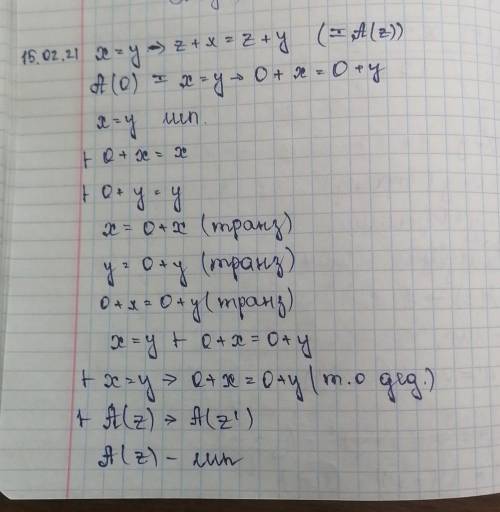 15.02.21 x = y → z + x = z + y (= A(z))
A(0) = x = y → 0 + x = 0 + y
x = y гип.
⊢ 0 + x = x
⊢ 0 + y = y
x = 0 + x (транз)
y = 0 + y (транз)
0 + x = 0 + y (транз)
x = y ⊢ 0 + x = 0 + y
⊢ x = y → 0 + x = 0 + y (т. о дед.)
⊢ A(z) → A(z')
A(z) - гип